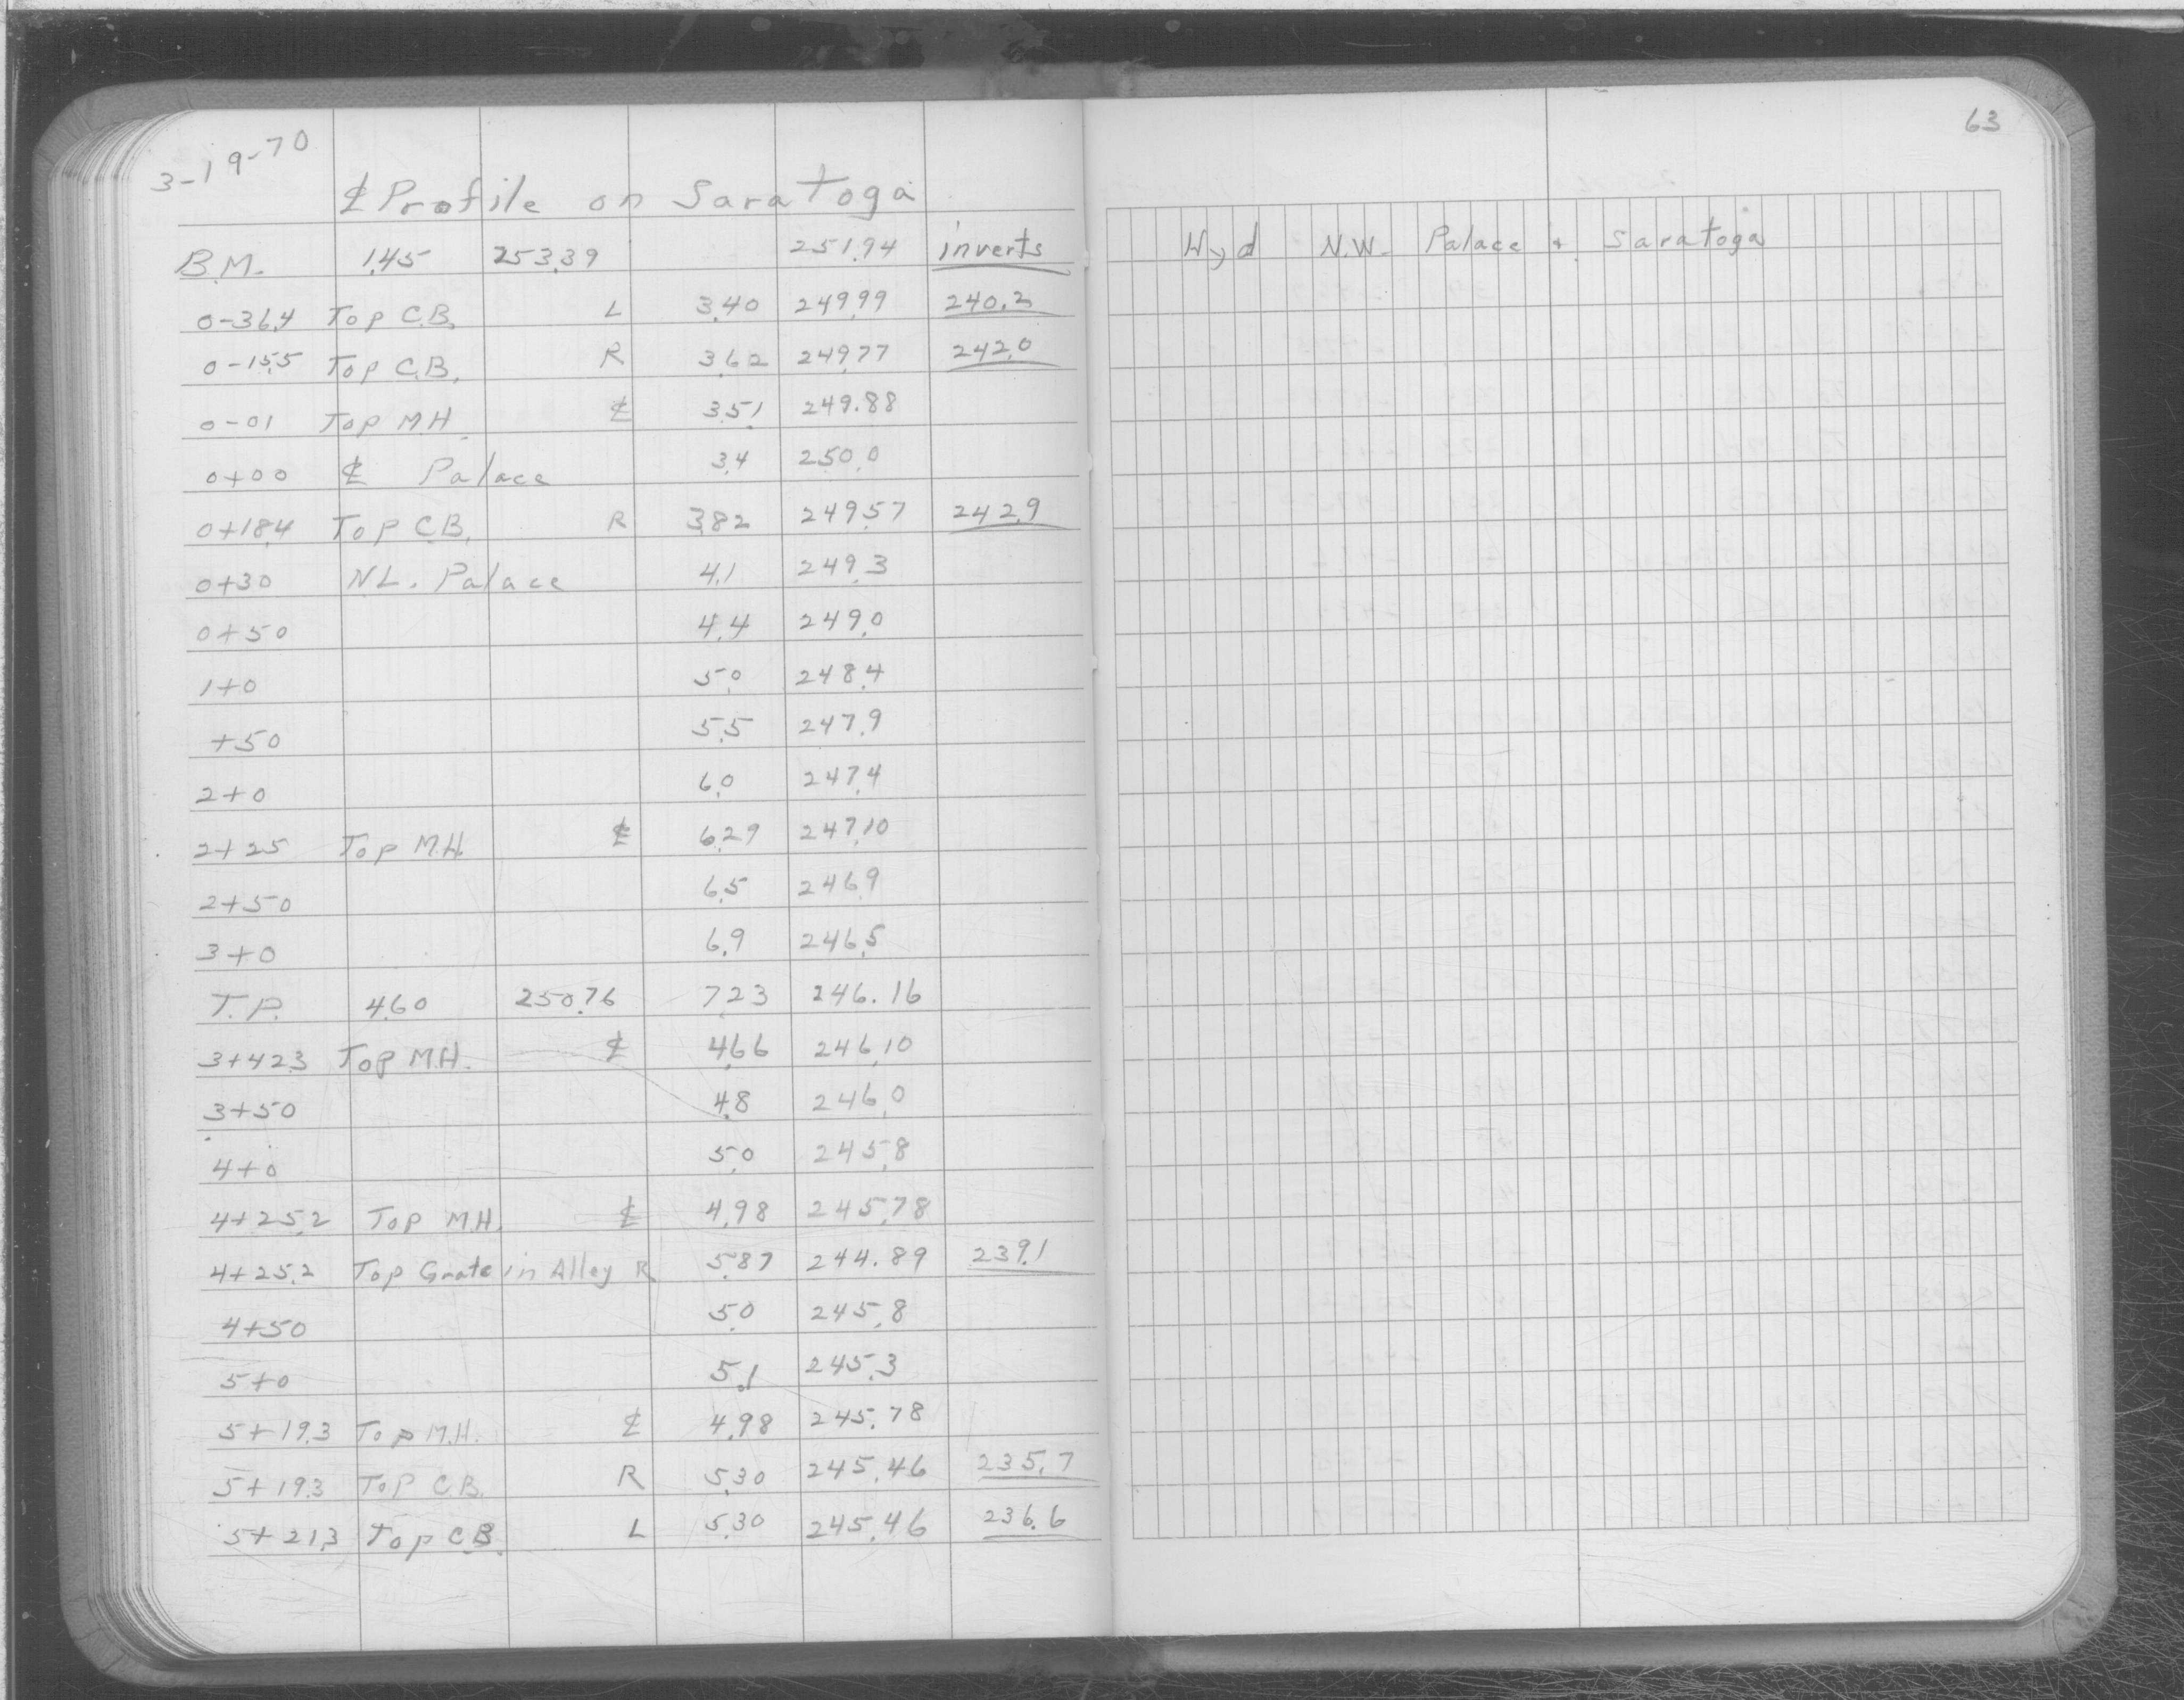 3-19-70
63
₵ Profile on Saratoga
B.M. 1.45 253.39 251.94 inverts Hyd N.W. Palace + Saratoga
0-36.4 Top C.B. L 3.40 249.99 240.2
0-15.5 Top C.B. R 3.62 249.77 242.0
0-01 Top M.H. ₵ 3.51 249.88
0+00 ₵ Palace 3.4 250.0
0+18.4 Top C.B. R 3.82 249.57 242.9
0+30 NL. Palace 4.1 249.3
0+50 4.4 249.0
1+0 5.0 248.4
+50 5.5 247.9
2+0 6.0 247.4
2+25 Top M.H. ₵ 6.29 247.10
2+50 6.5 246.9
3+0 6.9 246.5
T.P. 4.60 250.76 7.23 246.16
3+42.3 Top M.H. ₵ 4.66 246.10
3+50 4.8 246.0
4+0 5.0 245.8
4+25.2 Top M.H. ₵ 4.98 245.78
4+25.2 Top Grate in Alley R 5.87 244.89 239.1
4+50 5.0 245.8
5+0 5.1 245.3
5+19.3 Top M.H. ₵ 4.98 245.78
5+19.3 Top C.B. R 5.30 245.46 235.7
5+21.3 Top C.B. L 5.30 245.46 236.6